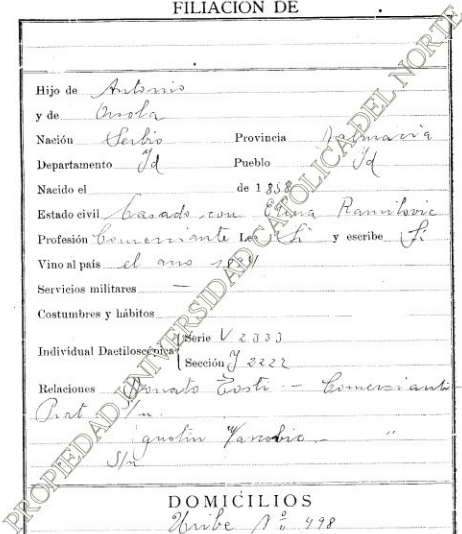 FILIACION DE
Hijo de Antonio
y de Orsola
Nación Serbio Provincia Dalmacia
Departamento Id Pueblo Id
Nacido el de 1858
Estado civil Casado con Elena Ranilovic
Profesión Comerciante Lee Si y escribe Si
Vino al país el ano
Servicios militares —
Costumbres y hábitos
Individual Dactiloscópica Serie V 2333
Sección J 2222
Relaciones Donato Tosti - Comerciante
Prat S/n
"
S/n
DOMICILIOS
Uribe Nº 498
PROPIEDAD UNIVERSIDAD CATOLICA DEL NORTE